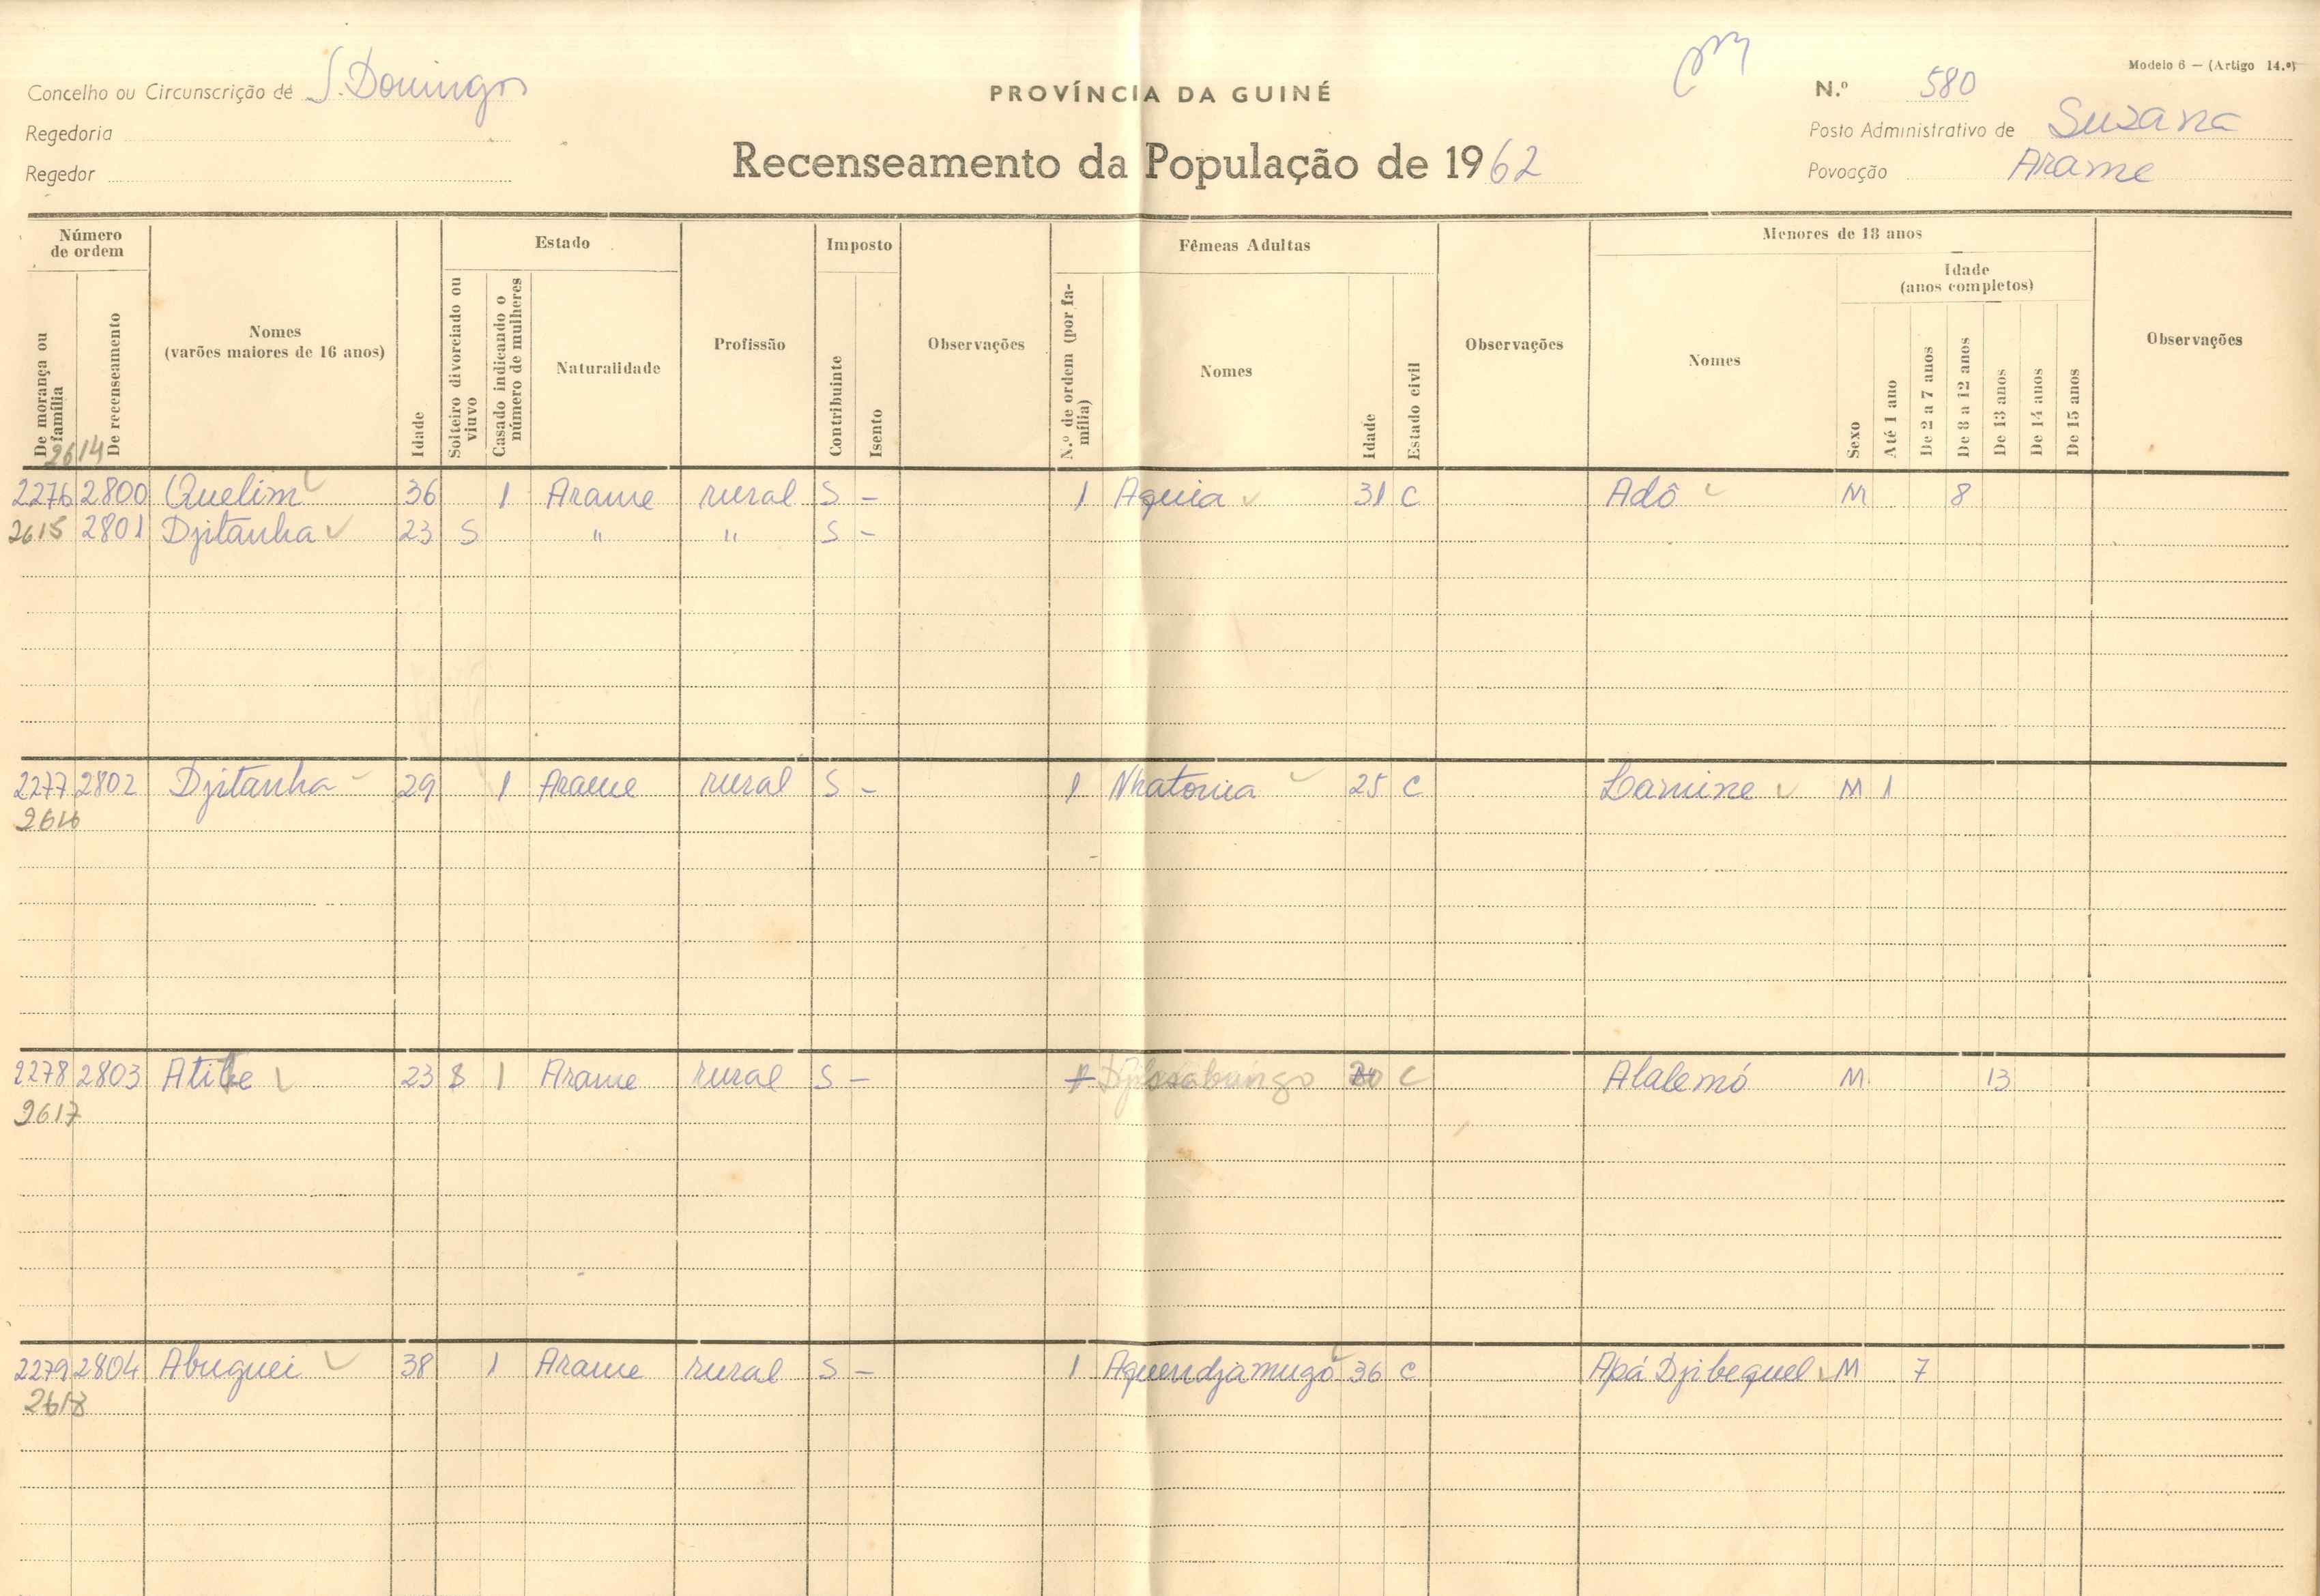 Modelo 6 — (Artigo 14.º)
Concelho ou Circunscrição de S. Domingos
PROVÍNCIA DA GUINÉ
N.º 580
Regedoria
Posto Administrativo de Suzana
Regedor
Recenseamento da População de 1962
Povoação Arame
Número de ordem
Estado
Imposto
Fêmeas Adultas
Menores de 18 anos
Idade (anos completos)
De morança ou família
De recenseamento
Nomes (varões maiores de 16 anos)
Idade
Solteiro divorciado ou viuvo
Casado indicando o número de mulheres
Naturalidade
Profissão
Contribuinte
Isento
Observações
N.º de ordem (por família)
Nomes
Idade
Estado civil
Observações
Nomes
Sexo
Até 1 ano
De 2 a 7 anos
De 8 a 12 anos
De 13 anos
De 14 anos
De 15 anos
Observações
2614
2276 2800 Quelim 36 1 Arame rural S - 1 Aquia 31 C Adô M 8
2615 2801 Djitanha 23 S " " S -
2277 2802 Djitanha 29 1 Arame rural S - 1 Nhatonia 25 C Lamine M 1
2616
2278 2803 Atibe 23 S 1 Arame rural S - 1 C Alalemó M 13
2617
2279 2804 Abuguei 38 1 Arame rural S - 1 Aquendjamugó 36 C Apá Djibequel M 7
2618